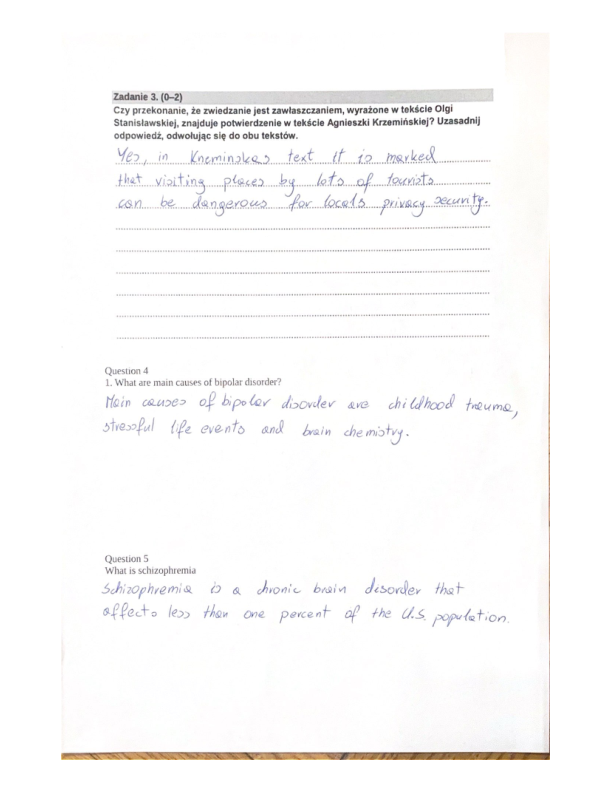 Zadanie 3. (0–2)
Czy przekonanie, że zwiedzanie jest zawłaszczaniem, wyrażone w tekście Olgi
Stanisławskiej, znajduje potwierdzenie w tekście Agnieszki Krzemińskiej? Uzasadnij
odpowiedź, odwołując się do obu tekstów.
Yes, in Kneminskas text it is marked
that visiting places by lots of tourists
can be dangerous for locals privacy security.
Question 4
1. What are main causes of bipolar disorder?
Main causes of bipolar disorder are childhood treuma,
stressful life events and brain chemistry.
Question 5
What is schizophremia
Schizophremia is a chronic brain disorder that
affects less than one percent of the U.S. population.